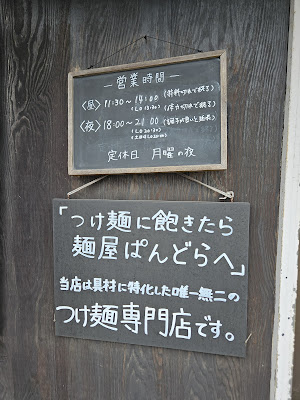 ― 営業時間 ―
〈昼〉 11:30~14:00 (材料切れで終了)
(L.O 13:30)
〈夜〉 18:00~21:00
(L.O 20:30)
定休日 月曜の夜
「つけ麺に飽きたら
麺屋ぱんどらへ」
当店は具材に特化した唯一無二の
つけ麺専門店です。